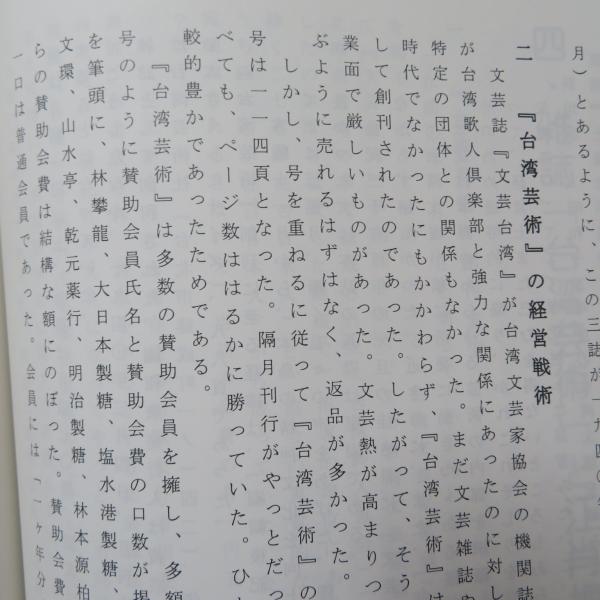 月）とあるように、この三誌が一九四〇年
二　『台湾芸術』の経営戦術
文芸誌『文芸台湾』が台湾文芸家協会の機関誌
が台湾歌人倶楽部と強力な関係にあったのに対し
特定の団体との関係もなかった。まだ文芸雑誌
時代でなかったにもかかわらず、『台湾芸術』は
して創刊されたのであった。したがって、そう
業面で厳しいものがあった。文芸熱が高まりつ
ぶように売れるはずはなく、返品が多かった。
しかし、号を重ねるに従って『台湾芸術』の
号は一一四頁となった。隔月刊行がやっとだっ
べても、ページ数ははるかに勝っていた。ひ
較的豊かであったためである。
『台湾芸術』は多数の賛助会員を擁し、多額
号のように賛助会員氏名と賛助会費の口数が掲
を筆頭に、林攀龍、大日本製糖、塩水港製糖、
文環、山水亭、乾元薬行、明治製糖、林本源柏
らの賛助会費は結構な額にのぼった。賛助会費
一口は普通会員であった。会員には「一ヶ年分